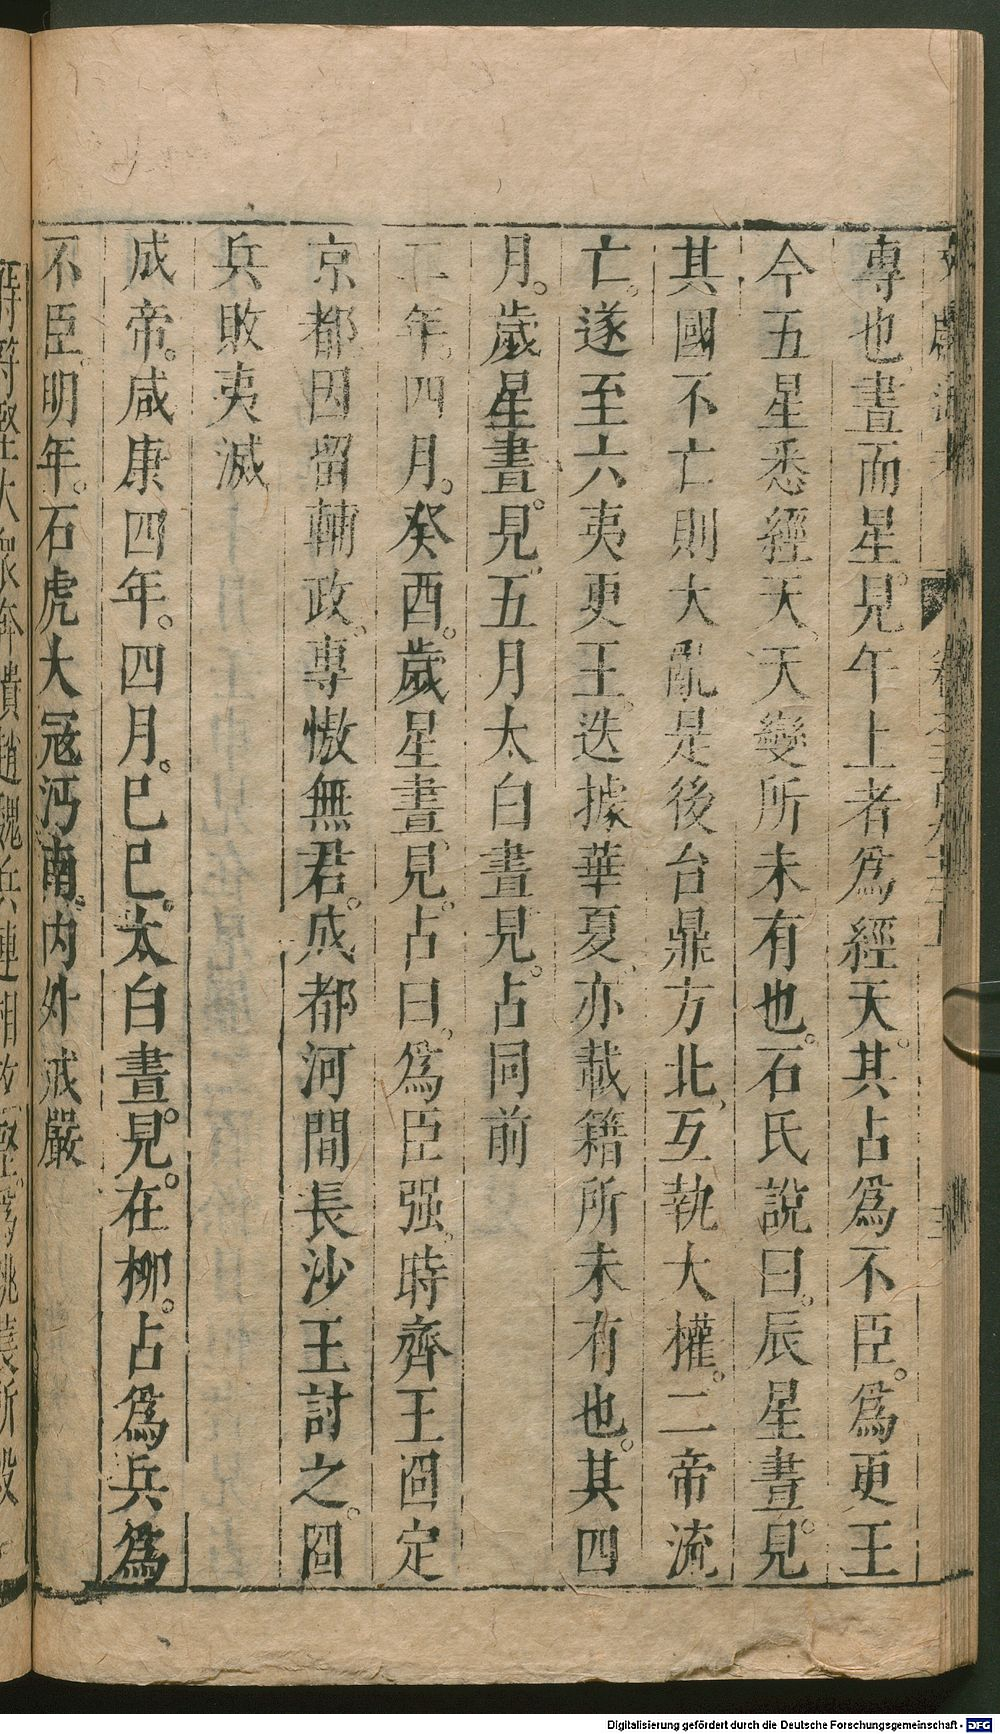 專也晝而星見午上者爲經天。其占爲不臣。爲更王
今五星悉經天。天變所未有也。石氏說曰。辰星晝見。
其國不亡則大亂是後台鼎方北、互執大權。二帝流
亡。遂至六夷更王。迭據華夏、亦載籍所未有也。其四
月。歲星晝。見、五月太白晝見。占同前
二年。四月。癸酉。歲星晝、見。占曰。爲臣强。時齊王冏定
京都因留輔政。專慠無君。成都河間長沙王討之。冏
兵敗夷滅
成帝。咸康四年。四月。巳巳。太白晝見。在柳。占爲兵爲
不臣。明年。石虎大冦沔南。内外戒嚴
Digitalisierung gefördert durch die Deutsche Forschungsgemeinschaft - DFG